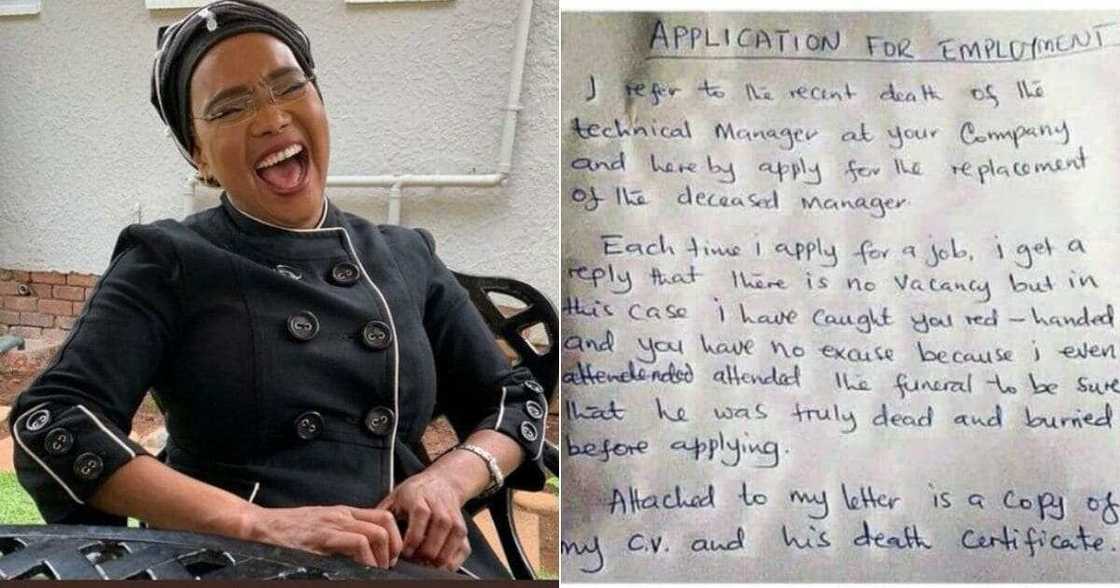 APPLICATION FOR EMPLOYMENT
I refer to the recent death of the
technical Manager at your Company
and hereby apply for the replacement
of the deceased manager.
Each time i apply for a job, i get a
reply that there is no vacancy but in
this case i have caught you red-handed
and you have no excuse because i even
attended the funeral to be sure
that he was truly dead and burried
before applying.
Attached to my letter is a copy of
my C.V. and his death certificate